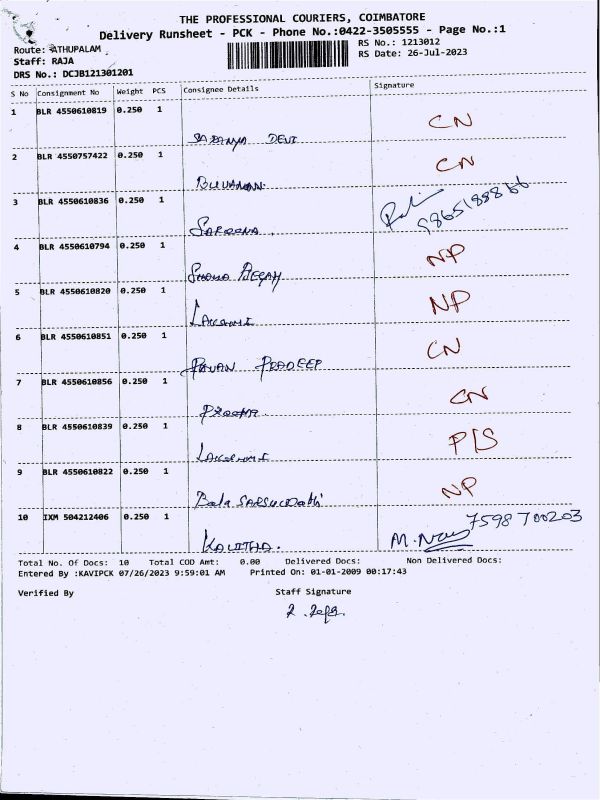 THE PROFESSIONAL COURIERS, COIMBATORE
Delivery Runsheet - PCK - Phone No.:0422-3505555 - Page No.:1
Route: ATHUPALAM
RS No.: 1213012
Staff: RAJA
RS Date: 26-Jul-2023
DRS No.: DCJB121301201
S No Consignment No Weight PCS Consignee Details Signature
1 BLR 4550610819 0.250 1 CN
DEVI
2 BLR 4550757422 0.250 1 CN
3 BLR 4550610836 0.250 1
4 BLR 4550610794 0.250 1 NP
5 BLR 4550610820 0.250 1 NP
6 BLR 4550610851 0.250 1 CN
PAVAN PRADEEP
7 BLR 4550610856 0.250 1 CN
8 BLR 4550610839 0.250 1 P/S
9 BLR 4550610822 0.250 1 NP
Bala
10 IXM 504212406 0.250 1 7598 700203
KAVITHA.
Total No. Of Docs: 10 Total COD Amt: 0.00 Delivered Docs: Non Delivered Docs:
Entered By :KAVIPCK 07/26/2023 9:59:01 AM Printed On: 01-01-2009 00:17:43
Verified By Staff Signature